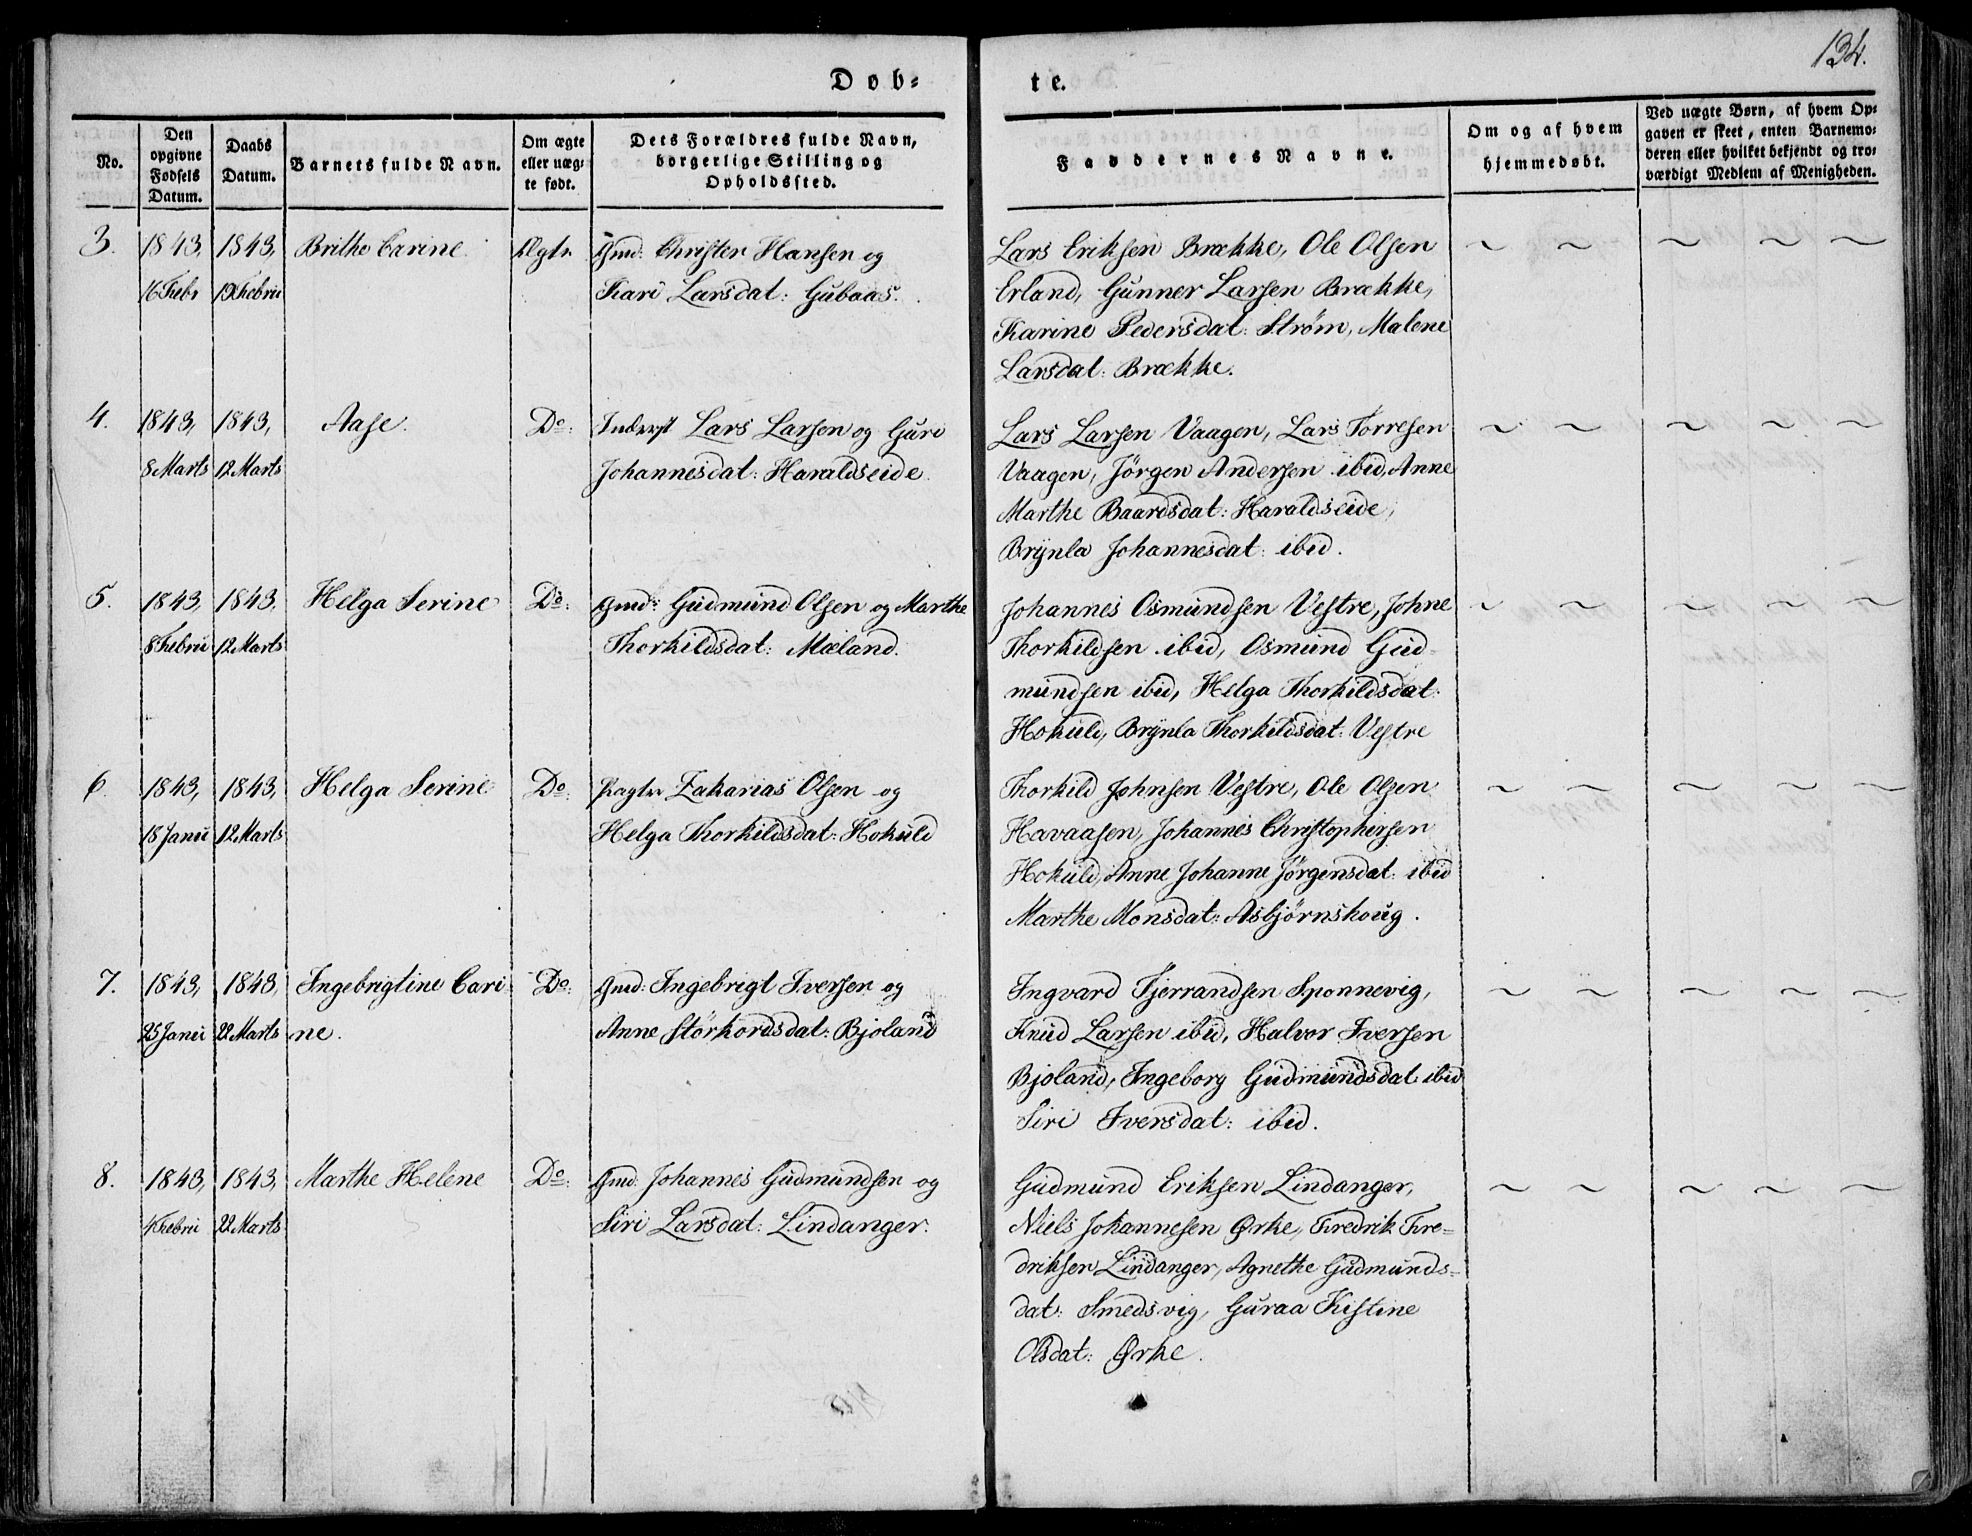 134.
Døb=
te.
No.
Den opgivne Fødsels Datum.
Daabs Datum.
Barnets fulde Navn.
Om ægte eller uæg= te født.
Dets Forældres fulde Navn, borgerlige Stilling og Opholdssted.
Faddernes Navne.
Om og af hvem hjemmedøbt.
Ved uægte Børn, af hvem Op= gaven er skeet, enten Barnemo= deren eller hvilket bekjendt og tro= værdigt Medlem af Menigheden.
3. 1843, 1843, Brithe Carine. Ægte. Gmd: Christer Hansen og
16 Febr 19 Februi Kari Larsdat: Gubaas.
Lars Eriksen Brække, Ole Olsen
Erland, Gunner Larsen Brække,
Karine Pedersdat: Strøm, Malene
Larsdat: Brække.
4. 1843, 1843, Aase. Do: Inderst Lars Larsen og Guri
8 Marts 12 Marts Johannesdat: Haraldseide.
Lars Larsen Vaagen, Lars Torresen
Vaagen, Jørgen Andersen ibid, Anne
Marthe Baardsdat: Haraldseide,
Brynla Johannesdat: ibid.
5. 1843, 1843. Helga Serine Do: Gmd: Gudmund Olsen og Marthe
8 Februi 12 Marts Thorkildsdat: Mæland.
Johannes Osmundsen Vestre, Johne
Thorkildsen ibid, Osmund Gud=
mundsen ibid, Helga Thorkildsdat:
Hokuld, Brynla Thorkildsdat: Vestre
6. 1843, 1843, Helga Serine Do: Pagter Zakarias Olsen og
18 Janui 12 Marts Helga Thorkildsdat: Hokuld
Thorkild Johnsen Vestre, Ole Olsen
Havaasen, Johannes Christophersen
Hokuld, Anne Johanne Jørgensdat: ibid
Marthe Monsdat: Asbjørnshoug.
7. 1843, 1843, Ingebrigtine Cari Do: Gmd: Ingebrigt Iversen og
25 Janui 22 Marts ne. Anne Storkordsdat: Bjoland
Ingvard Fjerrandsen Sponnevig,
Knud Larsen ibid, Halvor Iversen
Bjoland, Ingeborg Gudmundsdat ibid
Siri Iversdat: ibid.
8. 1843, 1843, Marthe Helene Do: Gmd: Johannes Gudmundsen og
4 Februi 22 Marts Siri Larsdat: Lindanger.
Gudmund Eriksen Lindanger,
Niels Johannesen Ørke, Fredrik Fre=
driksen Lindanger, Agnethe Gudmunds=
dat: Smedsvig, Guraa Kistine
Olsdat: Ørke.